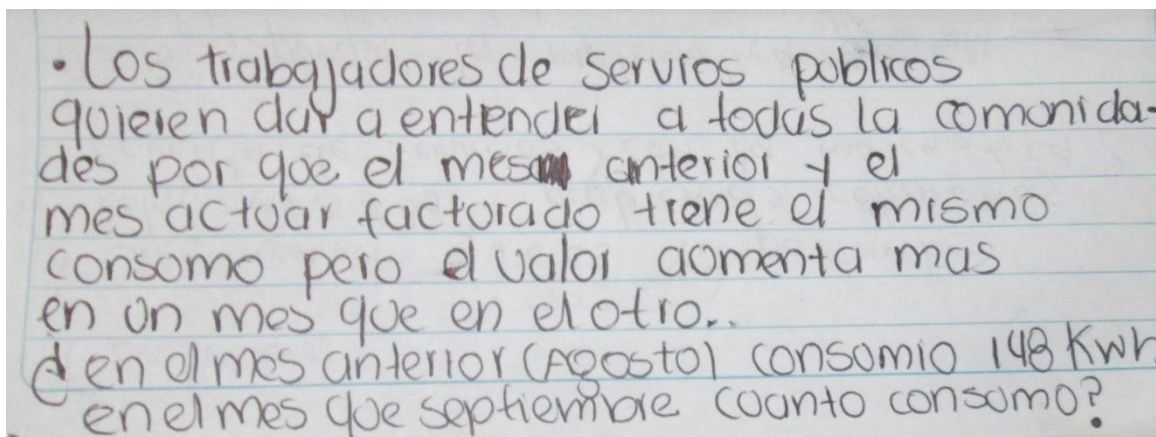 • Los trabajadores de servios publicos
quieren dar a entender a todas la comunida-
des por que el mes anterior y el
mes actuar facturado tiene el mismo
consumo pero el valor aumenta mas
en un mes que en el otro..
¿ en el mes anterior (Agosto) consumio 148 Kwh
en el mes que septiembre cuanto consumo?